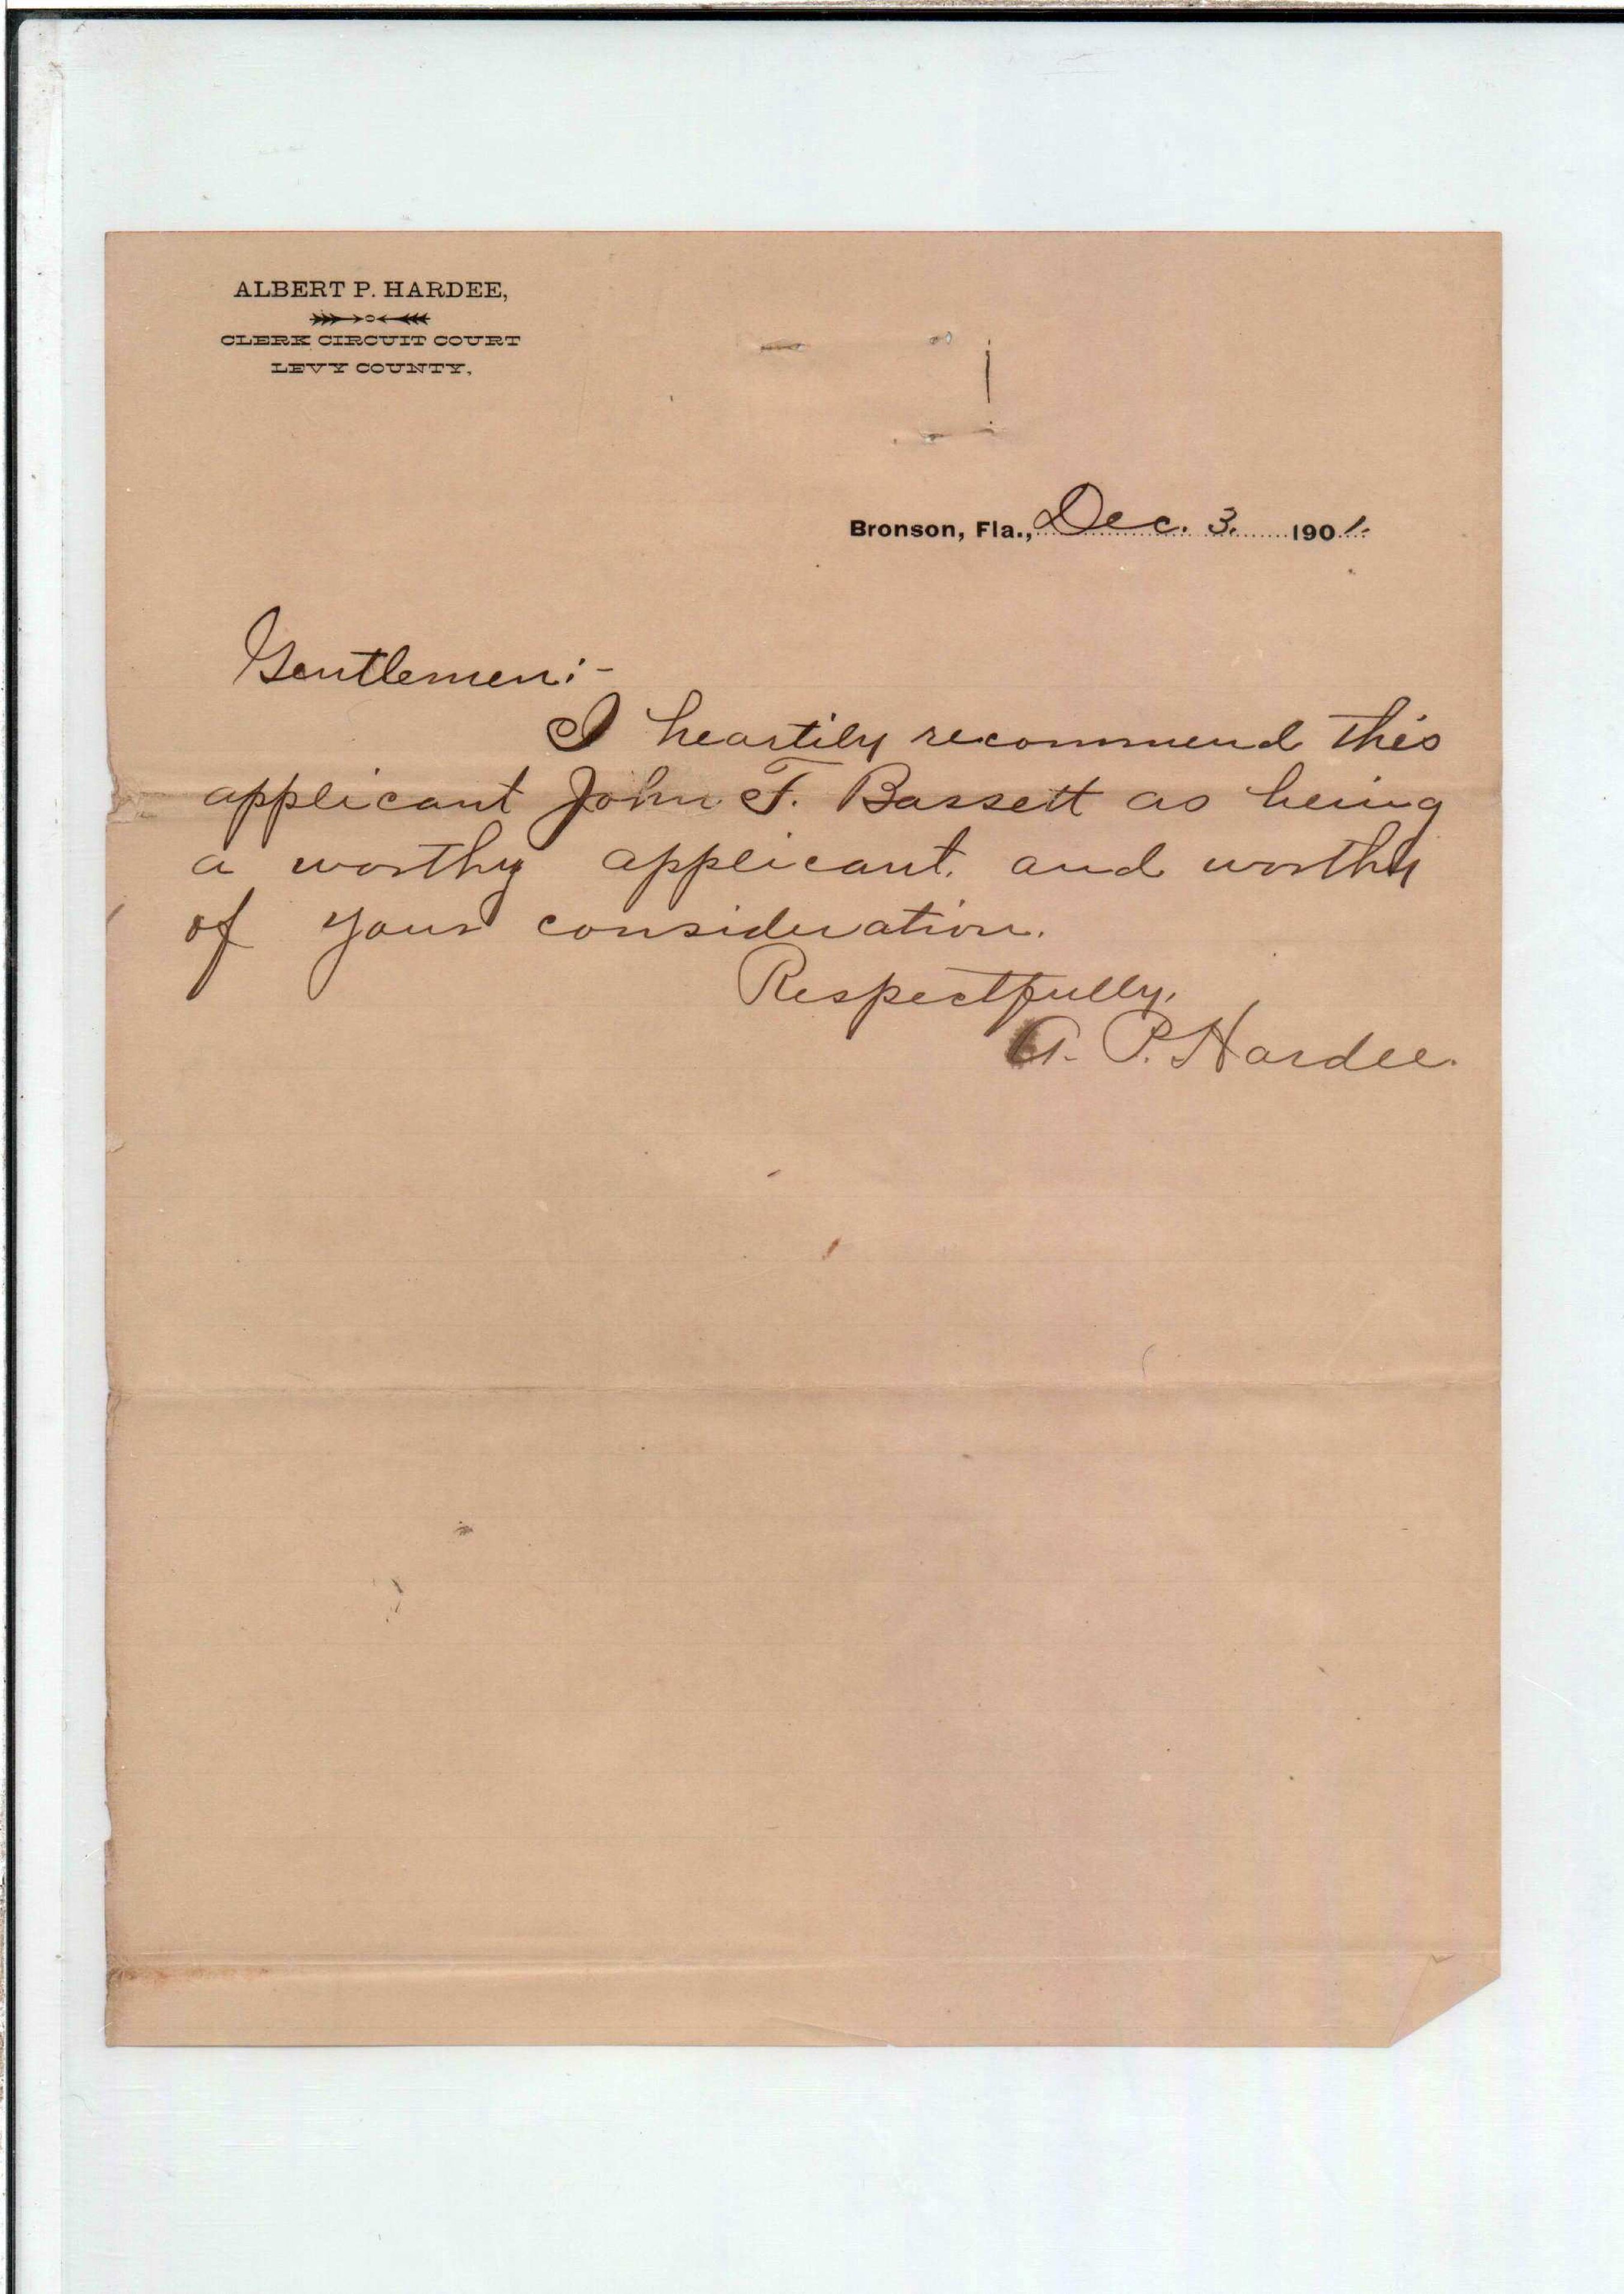 ALBERT P. HARDEE,
CLERK CIRCUIT COURT
LEVY COUNTY,
Bronson, Fla., Dec. 3. 1901.
Gentlemen:-
I heartily recommend this
applicant John F. Bassett as being
a worthy applicant. and worthy
of your consideration.
Respectfully,
A. P. Hardee.